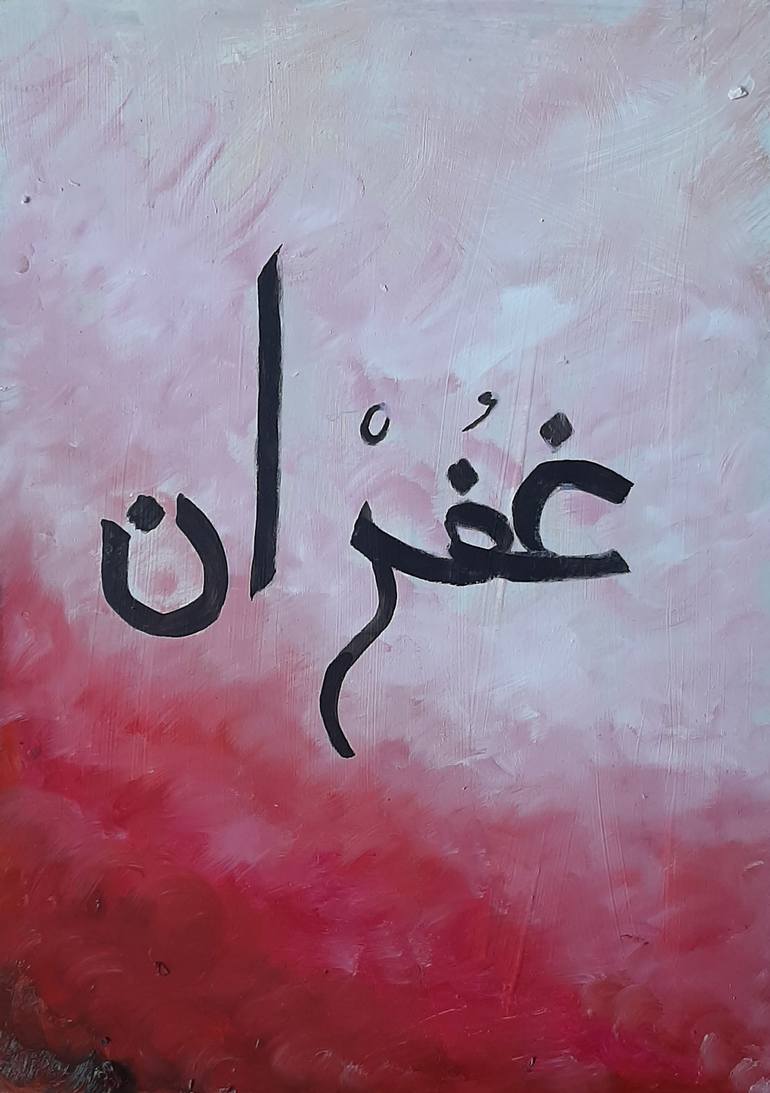 غفُرْان